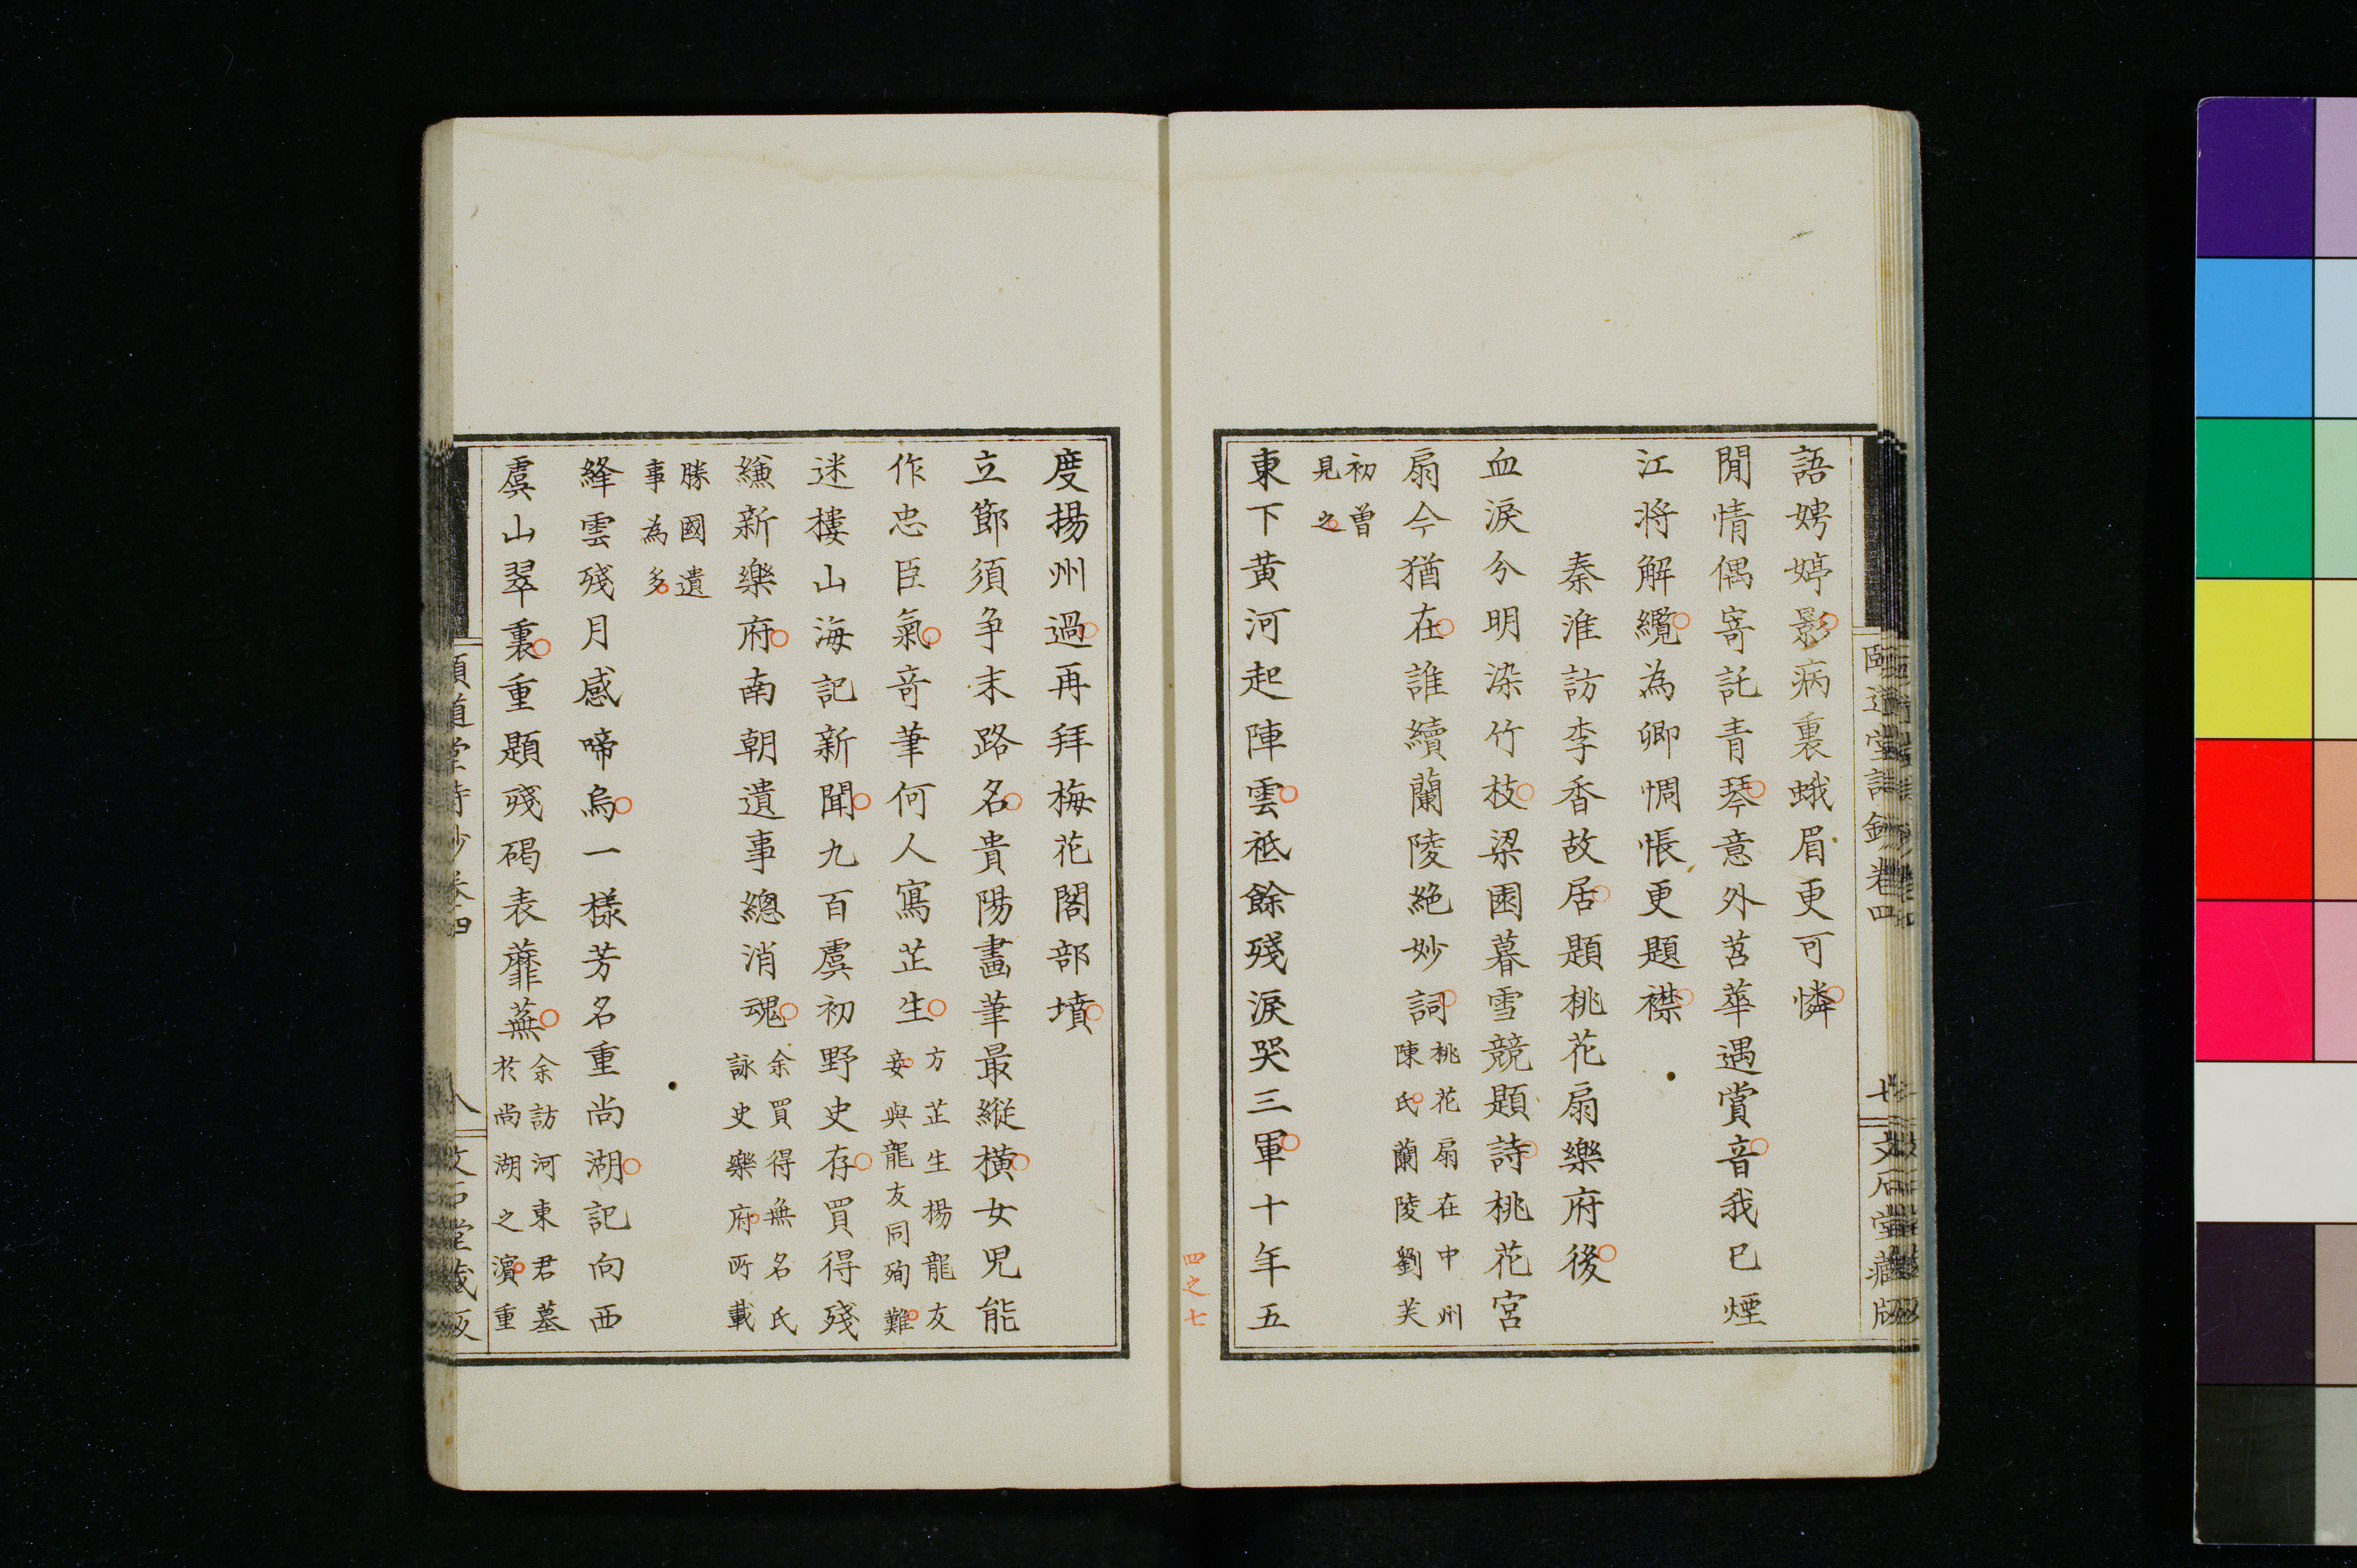 語娉婷影病裏蛾眉更可憐
閒情偶寄託青琴意外苕華遇賞音我已煙
江将解纜為卿惆悵更題襟
秦淮訪李香故居題桃花扇樂府後
血淚分明染竹枝梁園暮雪競題詩桃花宮
扇今猶在誰續蘭陵絶妙詞
桃花扇在中州
陳氏蘭陵劉芙
初曽
見之
東下黄河起陣雲祗餘殘淚哭三軍十年五
四之七
度揚州過再拜梅花閣部墳
立節須争末路名貴陽畫筆最縦橫女兒能
作忠臣氣奇筆何人寫芷生
方芷生楊龍友
妾與龍友同殉難
迷樓山海記新聞九百虞初野史存買得殘
縑新樂府南朝遺事總消魂
余買得無名氏
詠史樂府所載
勝國遺
事為多
絳雲殘月感啼烏一樣芳名重尚湖記向西
虞山翠裏重題殘碣表蘼蕪
余訪河東君墓
於尚湖之濵重
頤道堂詩鈔卷四
八
文石堂藏版